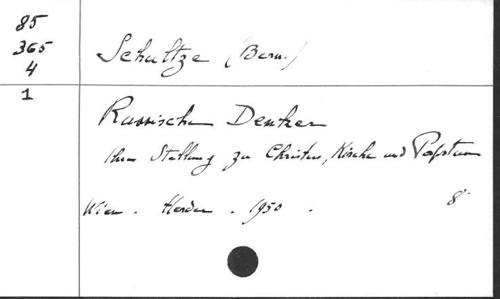 85
365
4
1
Schultze (Bern.)
Russische Denker
Ihre Stellung zu Christus, Kirche und Papsttum
Wien . Herder . 1950 . 8°